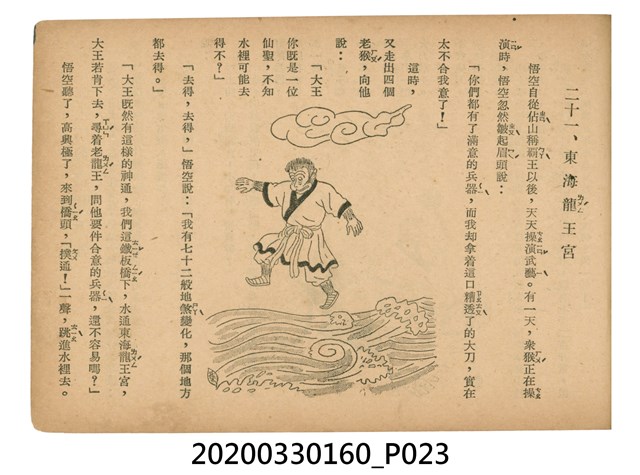 二十一、東海龍王宮
悟空自從佔山稱霸王以後，天天操演武藝。有一天，衆猴正在操
演時，悟空忽然皺起眉頭說：
「你們都有了滿意的兵器，而我却拿着這口糟透了的大刀，實在
太不合我意了！」
這時，
又走出四個
老猴，向他
說：
「大王
你既是一位
仙聖，不知
水裡可能去
得不？」
「去得，去得，」悟空說：「我有七十二般地煞變化，那個地方
都去得。」
「大王既然有這樣的神通，我們這鐵板橋下，水通東海龍王宮，
大王若肯下去，尋着老龍王，問他要件合意的兵器，還不容易嗎？」
悟空聽了，高興極了，來到橋頭，「撲通！」一聲，跳進水裡去。
20200330160_P023